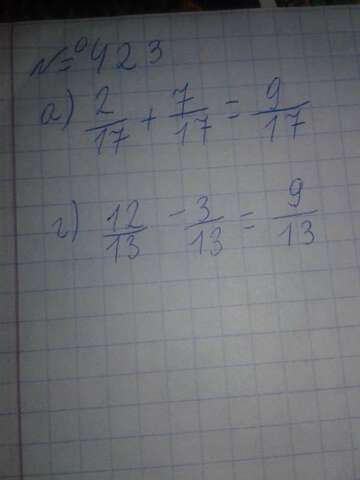 № 423
а) 2/17 + 7/17 = 9/17
г) 12/13 - 3/13 = 9/13